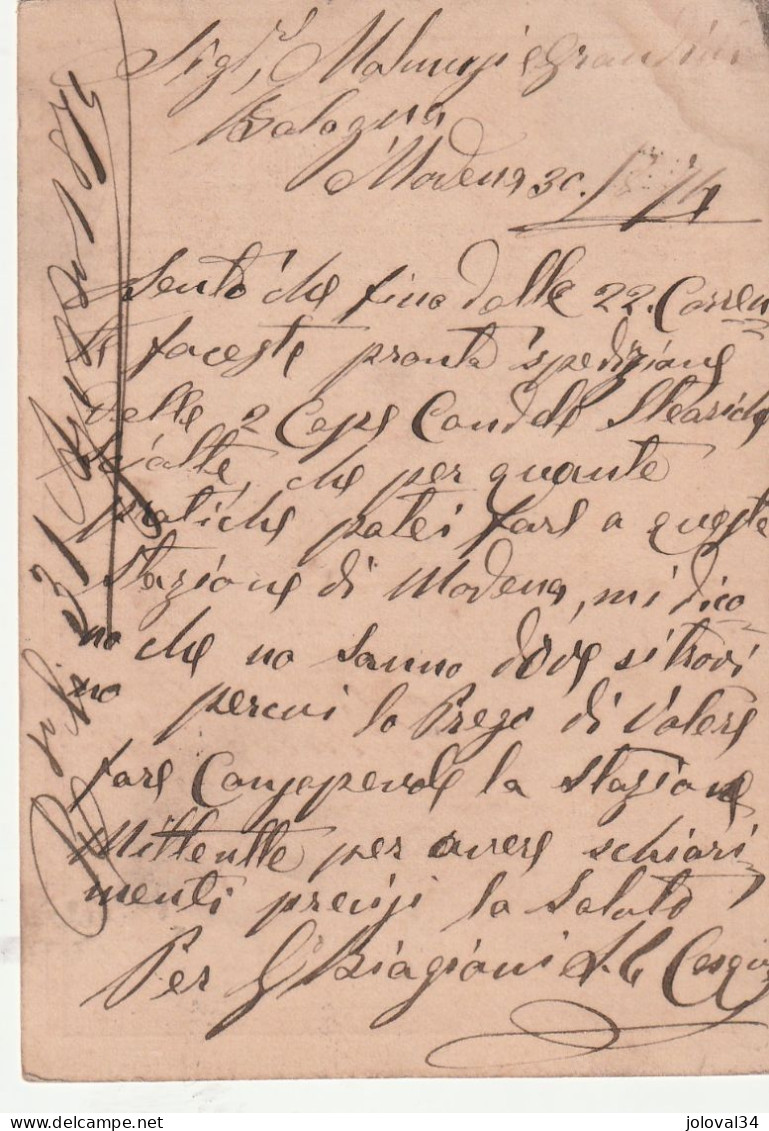 Sigr. Malmusi e Grandini
Bologna
Modena 30.
Sento che fino dalle 22. Corren
te faceste pronta spedizione
delle 2 Casse Candele Steariche
che per quante
pratiche potei fare a queste
stazione di Modena, mi dico
no che no sanno dove si trovi
no percui lo Prego di Volere
fare Consapevole la stazione
Mittentte per avere schiari
menti precisi la Saluto
Per G Biagioni
31 1874
joloval34